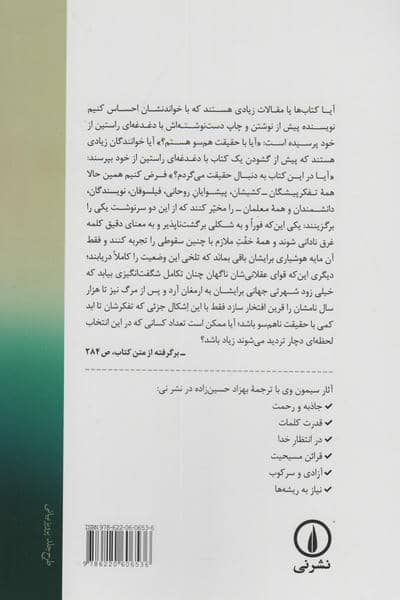 آیـا کتاب‌ها یا مقالات زیادی هستند که با خواندنشان احساس کنیم
نویسنده پیش از نوشتن و چاپ دست‌نوشته‌اش با دغدغه‌ای راستین از
خود پرسیده است: «آیا با حقیقت هم‌سو هستم؟» آیا خوانندگان زیادی
هستند که پیش از گشودن یک کتاب با دغدغه‌ای راستین از خود بپرسند:
«آیا در این کتاب به دنبال حقیقت می‌گردم؟» فرض کنیم همین حالا
همهٔ تفکرپیشگان ــ کشیشان، پیشوایان روحانی، فیلسوفان، نویسندگان،
دانشمندان و همهٔ معلمان ــ را مخیّر کنند که از این دو سرنوشت یکی را
برگزینند: یکی این‌که فوراً و به شکلی برگشت‌ناپذیر و به معنای دقیق کلمه
غرق نادانی شوند و همهٔ خفّتِ ملازم با چنین سقوطی را تجربه کنند و فقط
آن مایه هوشیاری برایشان باقی بماند که تلخی این وضعیت را کاملاً دریابند؛
دیگری این‌که قوای عقلانی‌شان ناگهان چنان تکامل شگفت‌انگیزی بیابد که
خیلی زود شهرتی جهانی برایشان به ارمغان آرد و پس از مرگ نیز تا هزار
سال نامشان را قرین افتخار سازد فقط با این اِشکال جزئی که تفکرشان تا ابد
کمی با حقیقت ناهم‌سو باشد؛ آیا ممکن است تعداد کسانی که در این انتخاب
لحظه‌ای دچار تردید می‌شوند زیاد باشد؟
ــ برگرفته از متن کتاب، ص ۲۸۴
آثار سیمون وی با ترجمهٔ بهزاد حسین‌زاده در نشر نی:
✓ جاذبه و رحمت
✓ قدرت کلمات
✓ در انتظار خدا
✓ قرائن مسیحیت
✓ آزادی و سرکوب
✓ نیاز به ریشه‌ها
ISBN: 978-622-06-0653-6
9 786220 606536
نشر نی
طرح جلد: پرویز بیانی